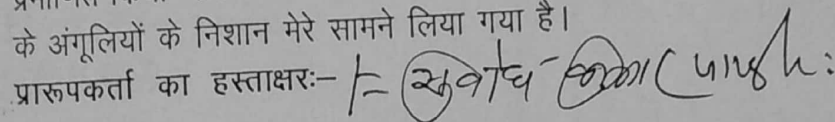 के अंगूलियों के निशान मेरे सामने लिया गया है।
प्रारूपकर्ता का हस्ताक्षरः– सुबोध